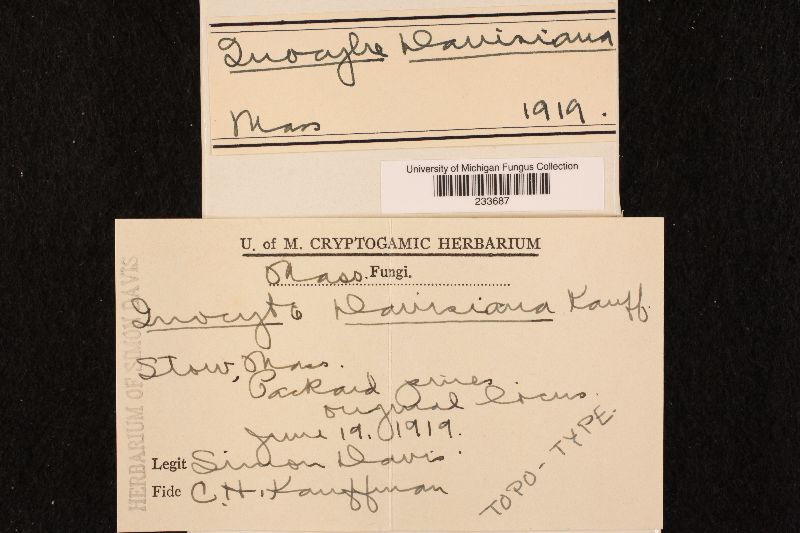 Inocybe Davisiana
Mass 1919.
University of Michigan Fungus Collection
233687
U. of M. CRYPTOGAMIC HERBARIUM
Mass. Fungi.
Inocybe Davisiana Kauff.
Stow, Mass.
Packard pines
original locus.
June 19. 1919.
Legit Simon Davis.
Fide C. H. Kauffman
TOPO-TYPE.
HERBARIUM OF SIMON DAVIS